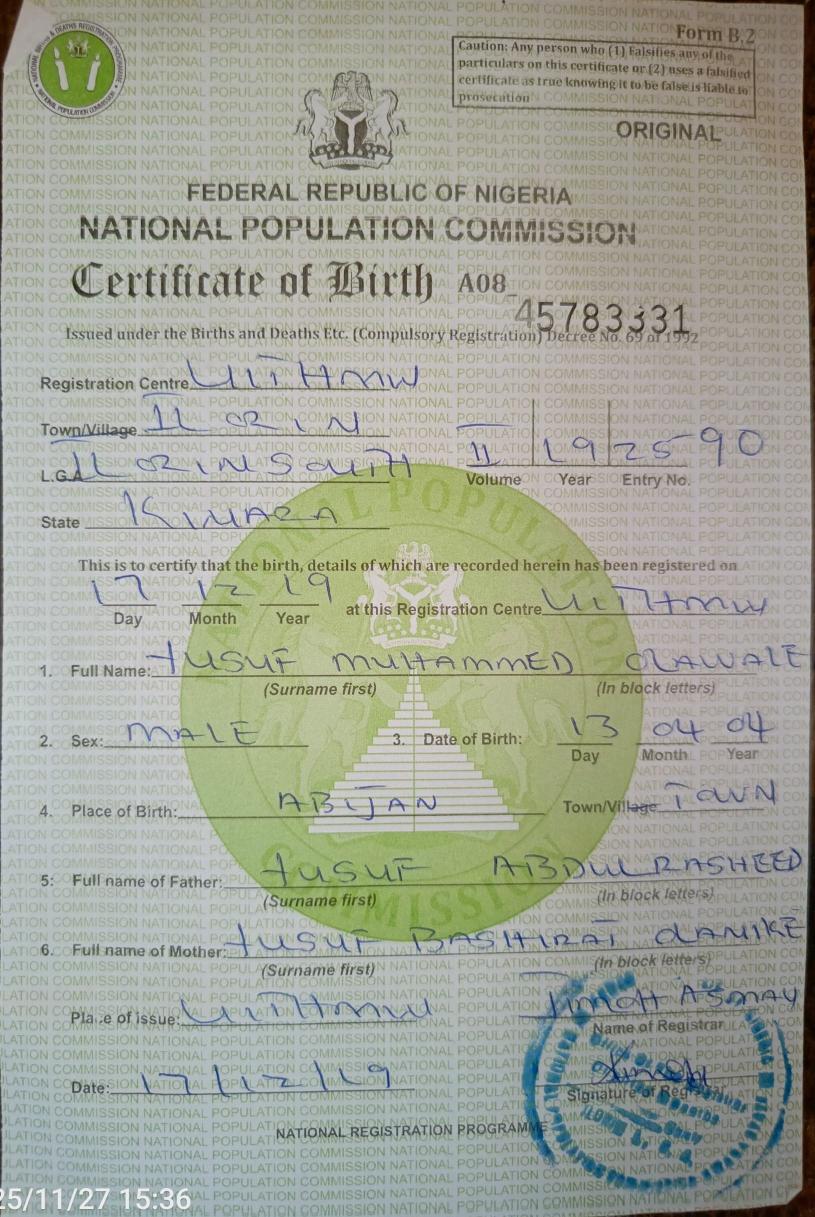 Form B.2
Caution: Any person who (1) Falsifies any of the
particulars on this certificate or (2) uses a falsified
certificate as true knowing it to be false is liable to
prosecution
ORIGINAL
FEDERAL REPUBLIC OF NIGERIA
NATIONAL POPULATION COMMISSION
Certificate of Birth A08
45783331
Issued under the Births and Deaths Etc. (Compulsory Registration) Decree No. 69 of 1992
Registration Centre UITHMW
Town/Village ILORIN
L.G.A ILORIN SOUTH II 19 25 90
Volume Year Entry No.
State KWARA
This is to certify that the birth, details of which are recorded herein has been registered on
17 12 19 at this Registration Centre UITHMW
Day Month Year
1. Full Name: YUSUF MUHAMMED OLAWALE
(Surname first) (In block letters)
2. Sex: MALE 3. Date of Birth: 13 04 04
Day Month Year
4. Place of Birth: ABIJAN Town/Village TOWN
5: Full name of Father: YUSUF ABDULRASHEED
(Surname first) (In block letters)
6. Full name of Mother: YUSUF BASHIRAT OLANIKE
(Surname first) (In block letters)
Place of issue: UITHMW JIMOH
Name of Registrar
Date: 17/12/19
Signature of Registrar
NATIONAL REGISTRATION PROGRAMME
25/11/27 15:36